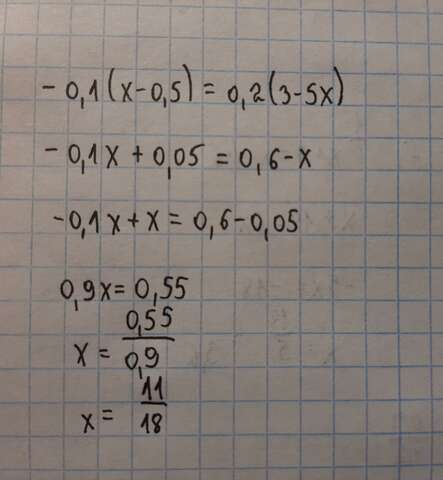 - 0,1(x-0,5) = 0,2(3-5x)
- 0,1x + 0,05 = 0,6-x
-0,1x+x = 0,6-0,05
0,9x = 0,55
x = 0,55/0,9
x = 11/18